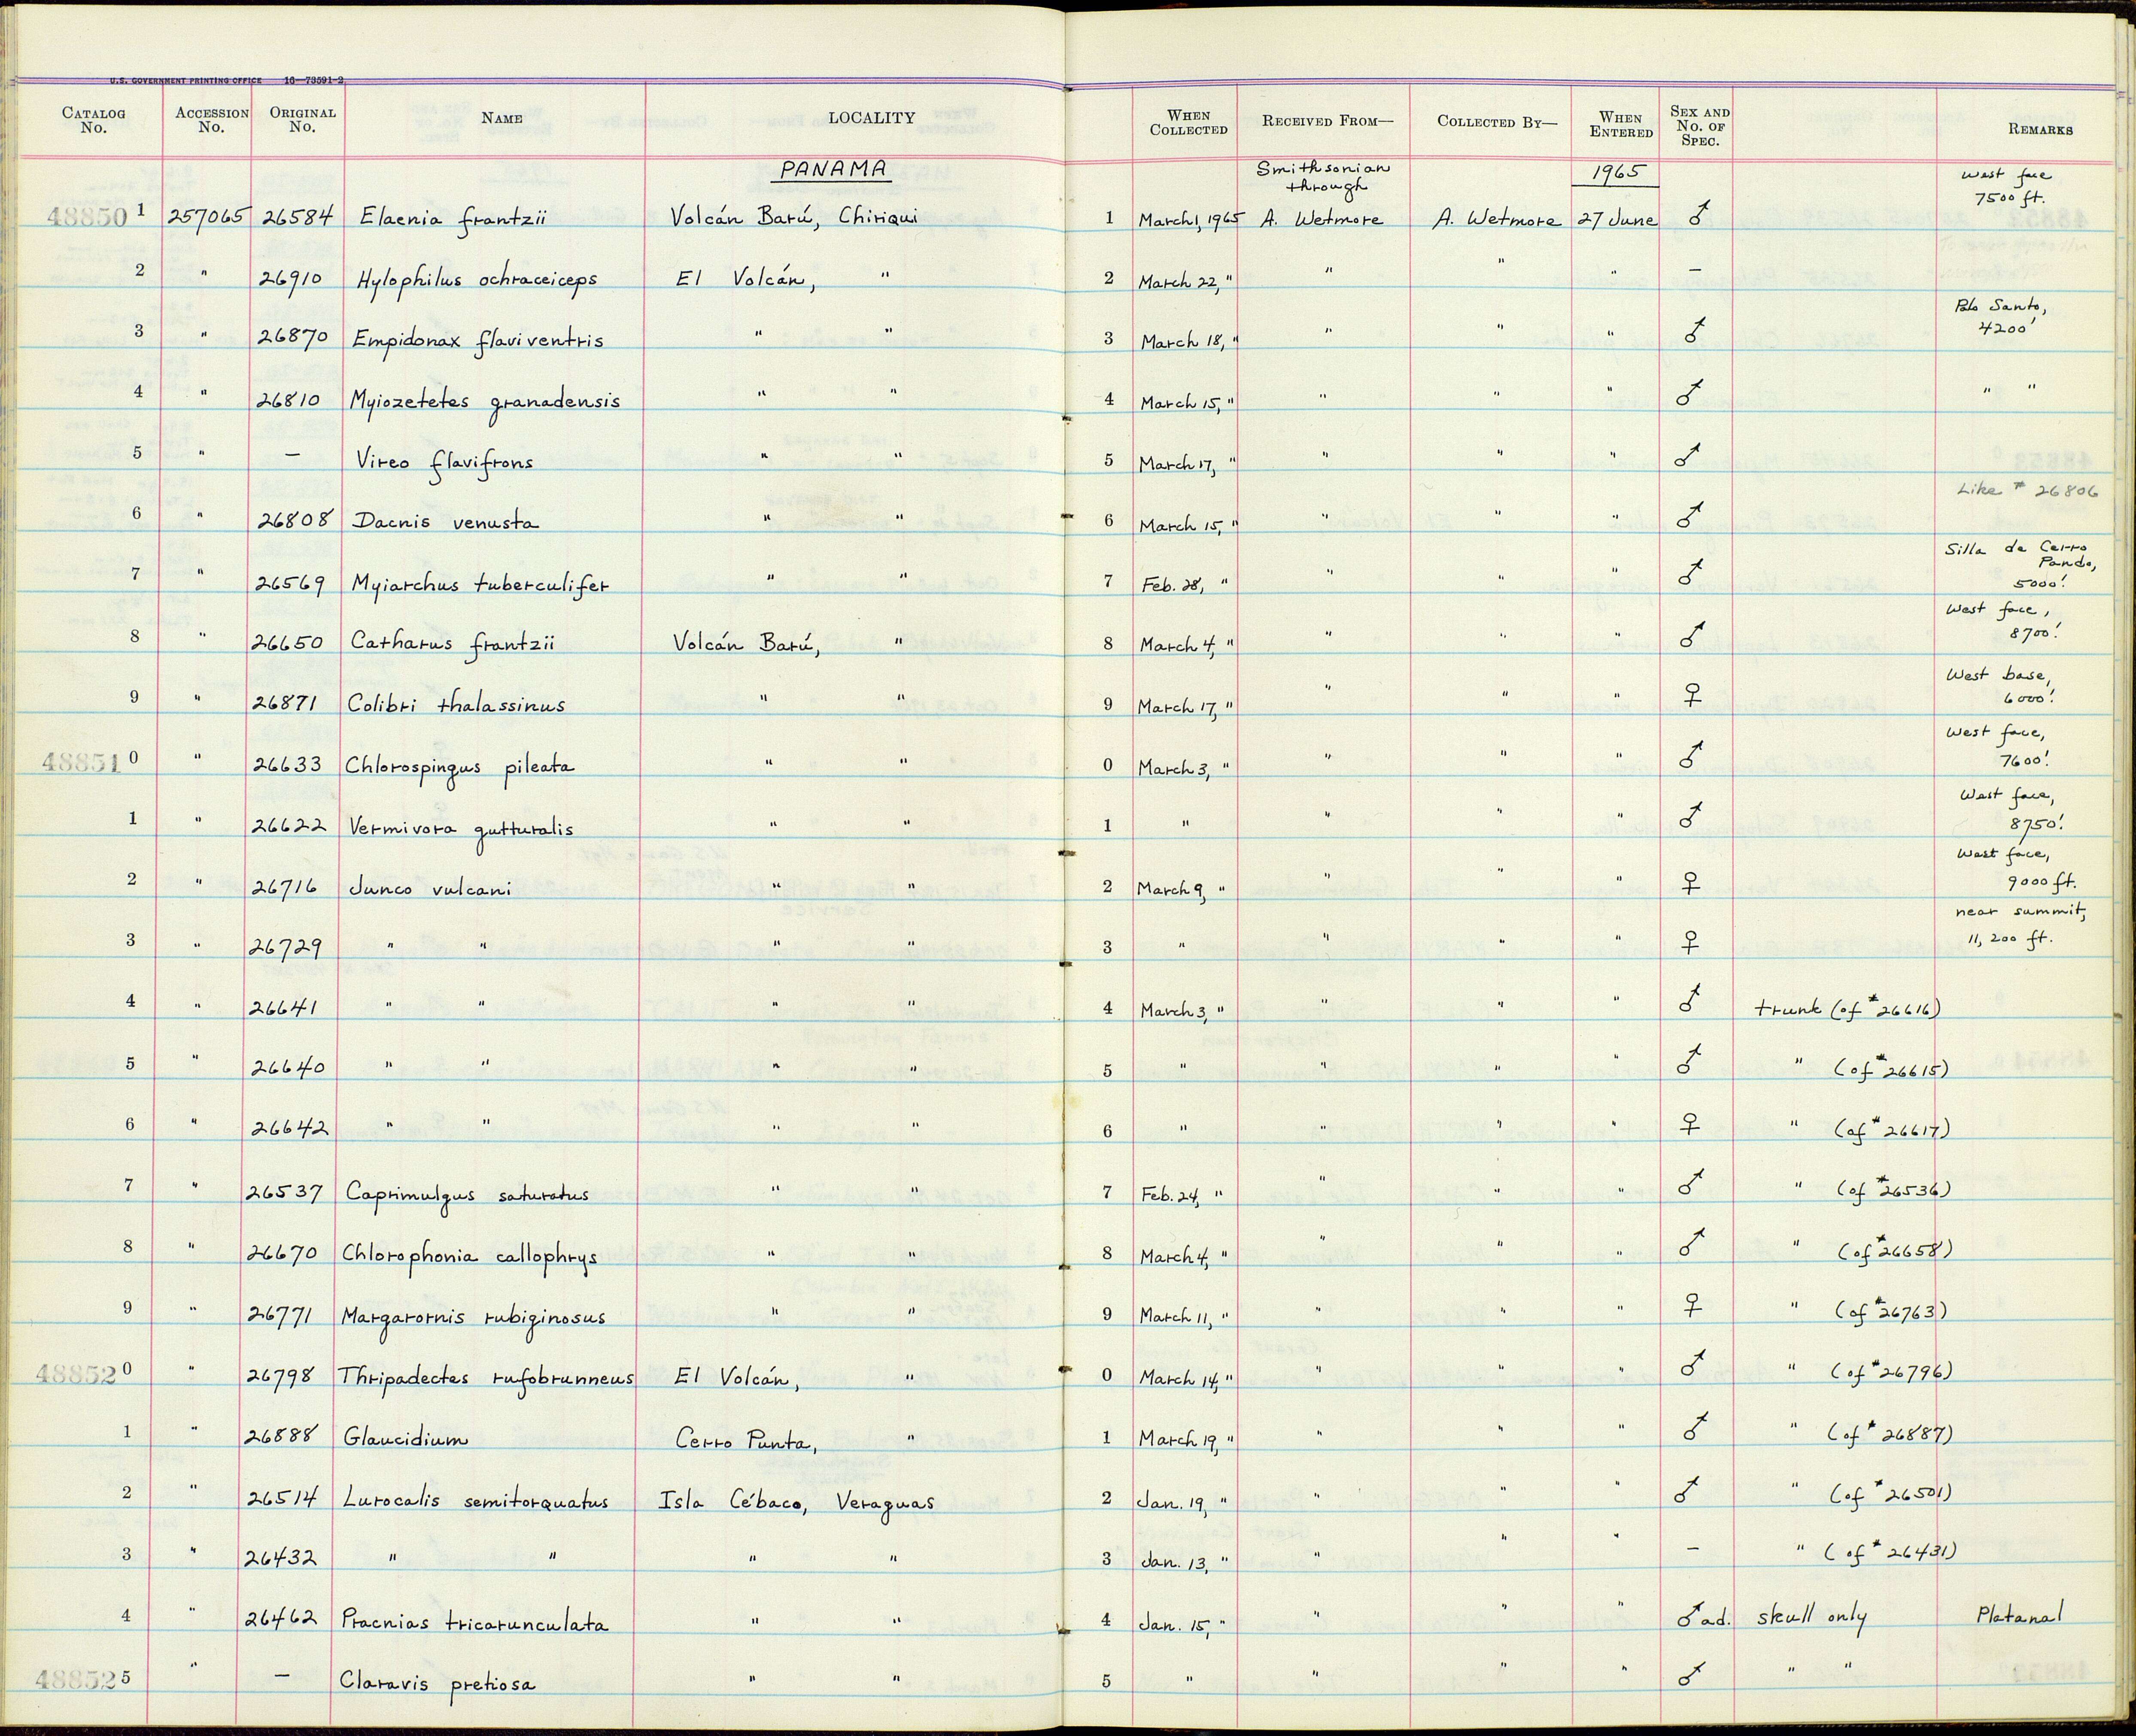 U.S. GOVERNMENT PRINTING OFFICE 16—73591-2
CATALOG No. ACCESSION No. ORIGINAL No. NAME LOCALITY WHEN COLLECTED RECEIVED FROM— COLLECTED BY— WHEN ENTERED SEX AND No. OF SPEC. REMARKS
PANAMA Smithsonian through 1965
488501 257065 26584 Elaenia frantzii Volcán Barú, Chiriqui 1 March 1, 1965 A. Wetmore A. Wetmore 27 June ♂ West face 7500 ft.
2 " 26910 Hylophilus ochraceiceps El Volcán, " 2 March 22, " " " " –
3 " 26870 Empidonax flaviventris " " 3 March 18, " " " " ♂ Palo Santo, 4200'
4 " 26810 Myiozetetes granadensis " " 4 March 15, " " " " ♂ " "
5 " – Vireo flavifrons " " 5 March 17, " " " " ♂
6 " 26808 Dacnis venusta " " 6 March 15, " " " " ♂ Like # 26806
7 " 26569 Myiarchus tuberculifer " " 7 Feb. 28, " " " " ♂ Silla de Cerro Pando, 5000'.
8 " 26650 Catharus frantzii Volcán Barú, " 8 March 4, " " " " ♂ West face, 8700'.
9 " 26871 Colibri thalassinus " " 9 March 17, " " " " ♀ West base, 6000'.
488510 " 26633 Chlorospingus pileata " " 0 March 3, " " " " ♂ West face, 7600'.
1 " 26622 Vermivora gutturalis " " 1 " " " " ♂ West face, 8750'.
2 " 26716 Junco vulcani " " 2 March 9, " " " " ♀ West face, 9000 ft.
3 " 26729 " " " " 3 " " " " ♀ near summit, 11,200 ft.
4 " 26641 " " " " 4 March 3, " " " " ♂ trunk (of # 26616)
5 " 26640 " " " " 5 " " " " ♂ " (of # 26615)
6 " 26642 " " " " 6 " " " " ♀ " (of # 26617)
7 " 26537 Caprimulgus saturatus " " 7 Feb. 24, " " " " ♂ " (of # 26536)
8 " 26670 Chlorophonia callophrys " " 8 March 4, " " " " ♂ " (of # 26658)
9 " 26771 Margarornis rubiginosus " " 9 March 11, " " " " ♀ " (of # 26763)
488520 " 26798 Thripadectes rufobrunneus El Volcán, " 0 March 14, " " " " ♂ " (of # 26796)
1 " 26888 Glaucidium Cerro Punta, " 1 March 19, " " " " ♂ " (of # 26887)
2 " 26514 Lurocalis semitorquatus Isla Cébaco, Veraguas 2 Jan. 19, " " " " ♂ " (of # 26501)
3 " 26432 " " " " 3 Jan. 13, " " " " – " (of # 26431)
4 " 26462 Pracnias tricarunculata " " 4 Jan. 15, " " " " ♂ ad. skull only Platanal
488525 " – Claravis pretiosa " " 5 " " " " ♂ " "